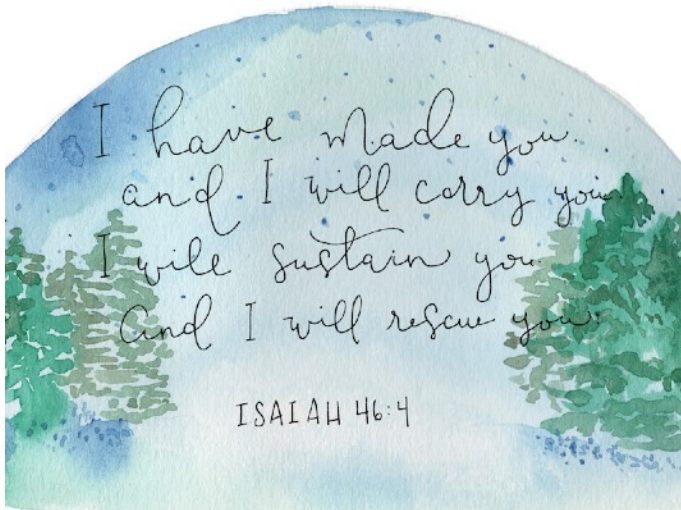 I have made you
and I will carry you.
I will sustain you
and I will rescue you.
ISAIAH 46:4